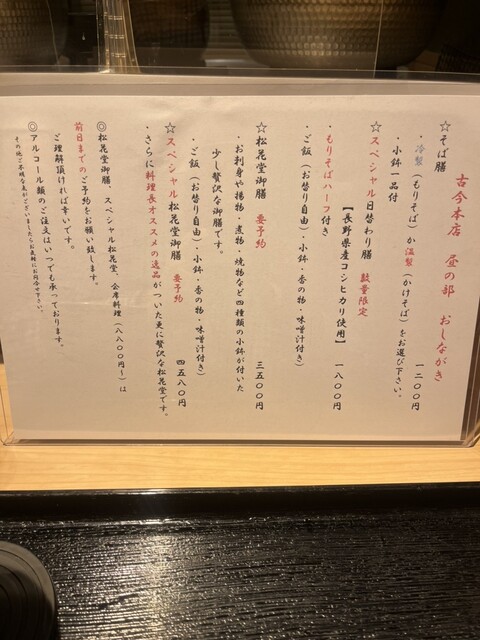 古今本店　昼の部　おしながき
☆そば膳　一二〇〇円
・冷製（もりそば）か温製（かけそば）をお選び下さい。
・小鉢一品付
☆スペシャル日替わり膳　数量限定　一八〇〇円
【長野県産コシヒカリ使用】
・もりそばハーフ付き
・ご飯（お替り自由）・小鉢・香の物・味噌汁付き）
☆松花堂御膳　要予約　三五〇〇円
・お刺身や揚物・煮物・焼物など四種類の小鉢が付いた
少し贅沢な御膳です。
・ご飯（お替り自由）・小鉢・香の物・味噌汁付き）
☆スペシャル松花堂御膳　要予約　四五八〇円
・さらに料理長オススメの逸品がついた更に贅沢な松花堂です。
◎松花堂御膳、スペシャル松花堂、会席料理（八八〇〇円～）は
前日までのご予約をお願い致します。
ご理解頂ければ幸いです。
◎アルコール類のご注文はいつでも承っております。
その他ご不明な点がございましたらお気軽にお問合せ下さい。